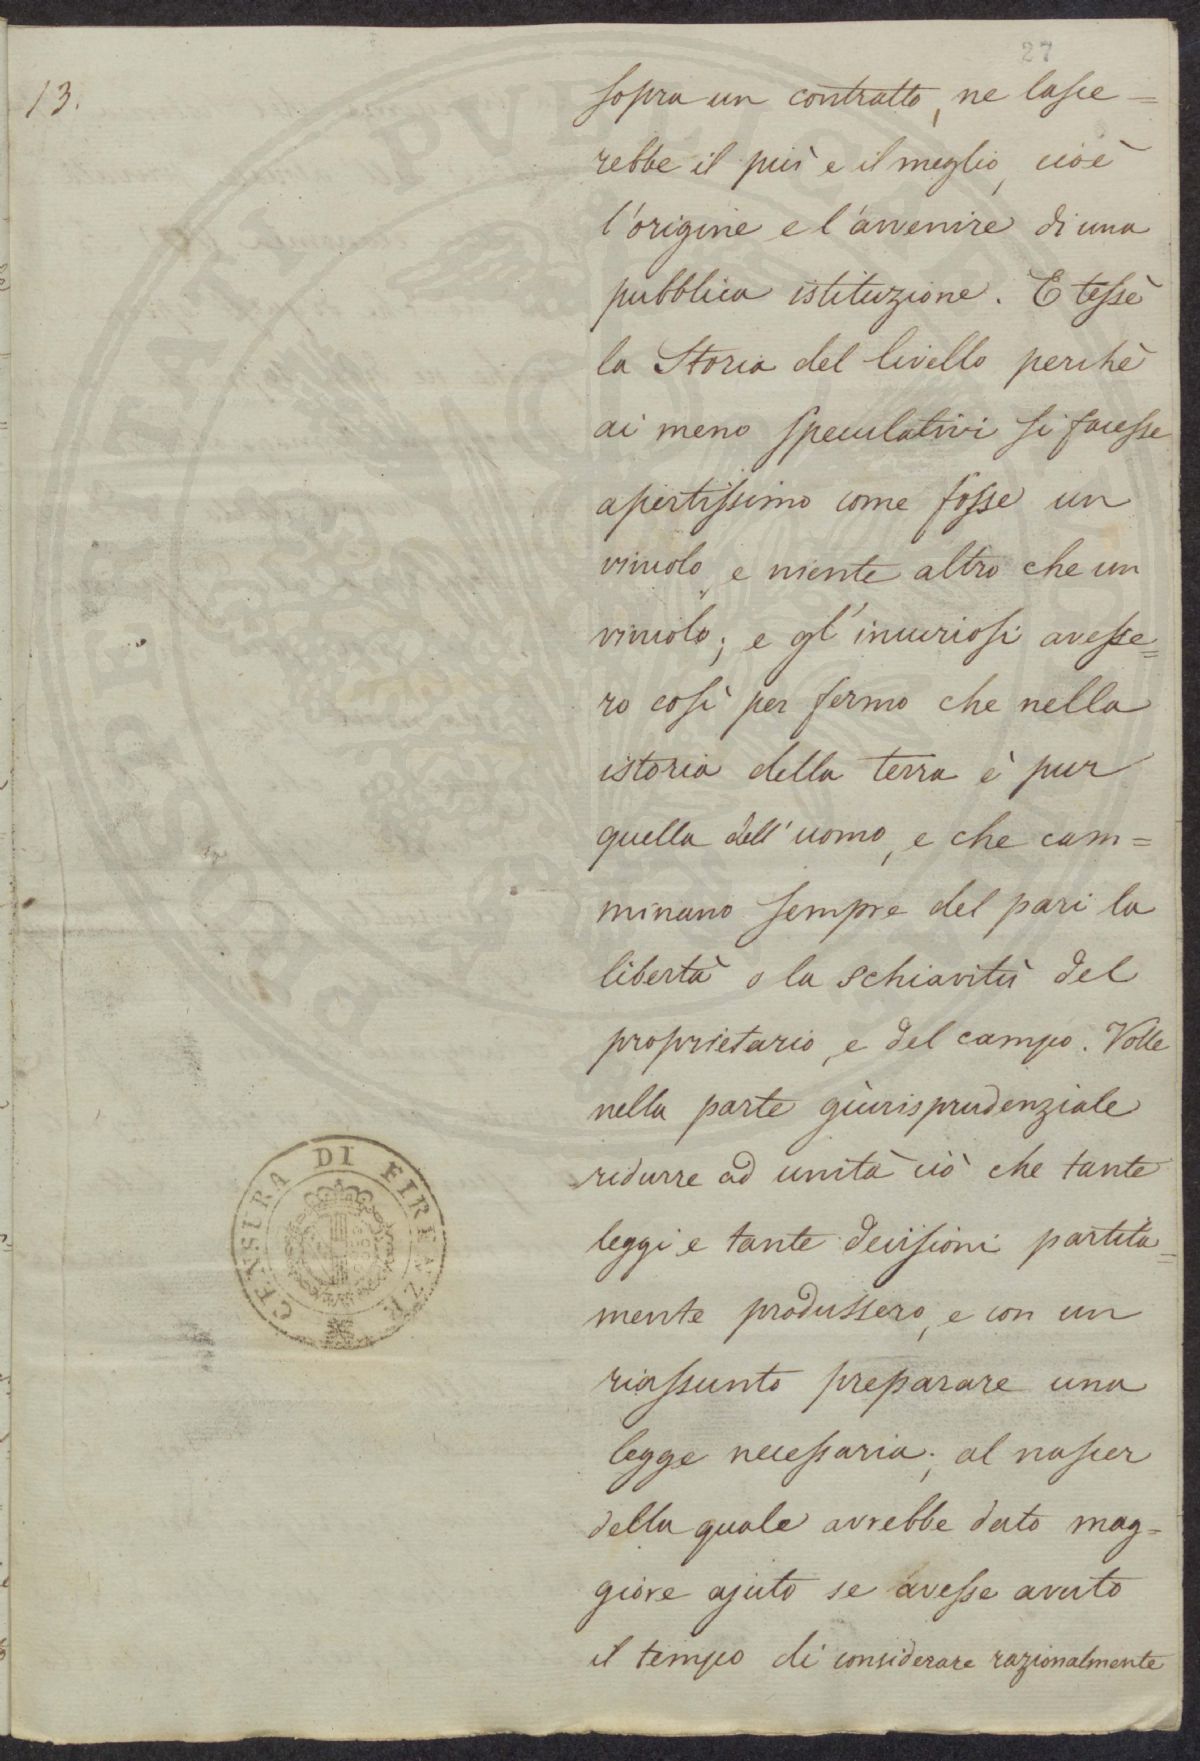 27
13.
sopra un contratto, ne lasce=
rebbe il più e il meglio, cioè
l'origine e l'avvenire di una
pubblica istituzione. E tessè
la Storia del livello perchè
ai meno speculativi si facesse
apertissimo come fosse un
vincolo, e niente altro che un
vincolo; e gl'incuriosi avesse=
ro così per fermo che nella
istoria della terra è pur
quella dell'uomo, e che cam=
minano sempre del pari la
libertà o la schiavitù del
proprietario, e del campo. Volle
nella parte giurisprudenziale
ridurre ad unità ciò che tante
leggi e tante decisioni partita=
mente produssero, e con un
riassunto preparare una
legge necessaria; al nascer
della quale avrebbe dato mag=
giore ajuto se avesse avuto
il tempo di considerare razionalmente
CENSURA DI FIRENZE